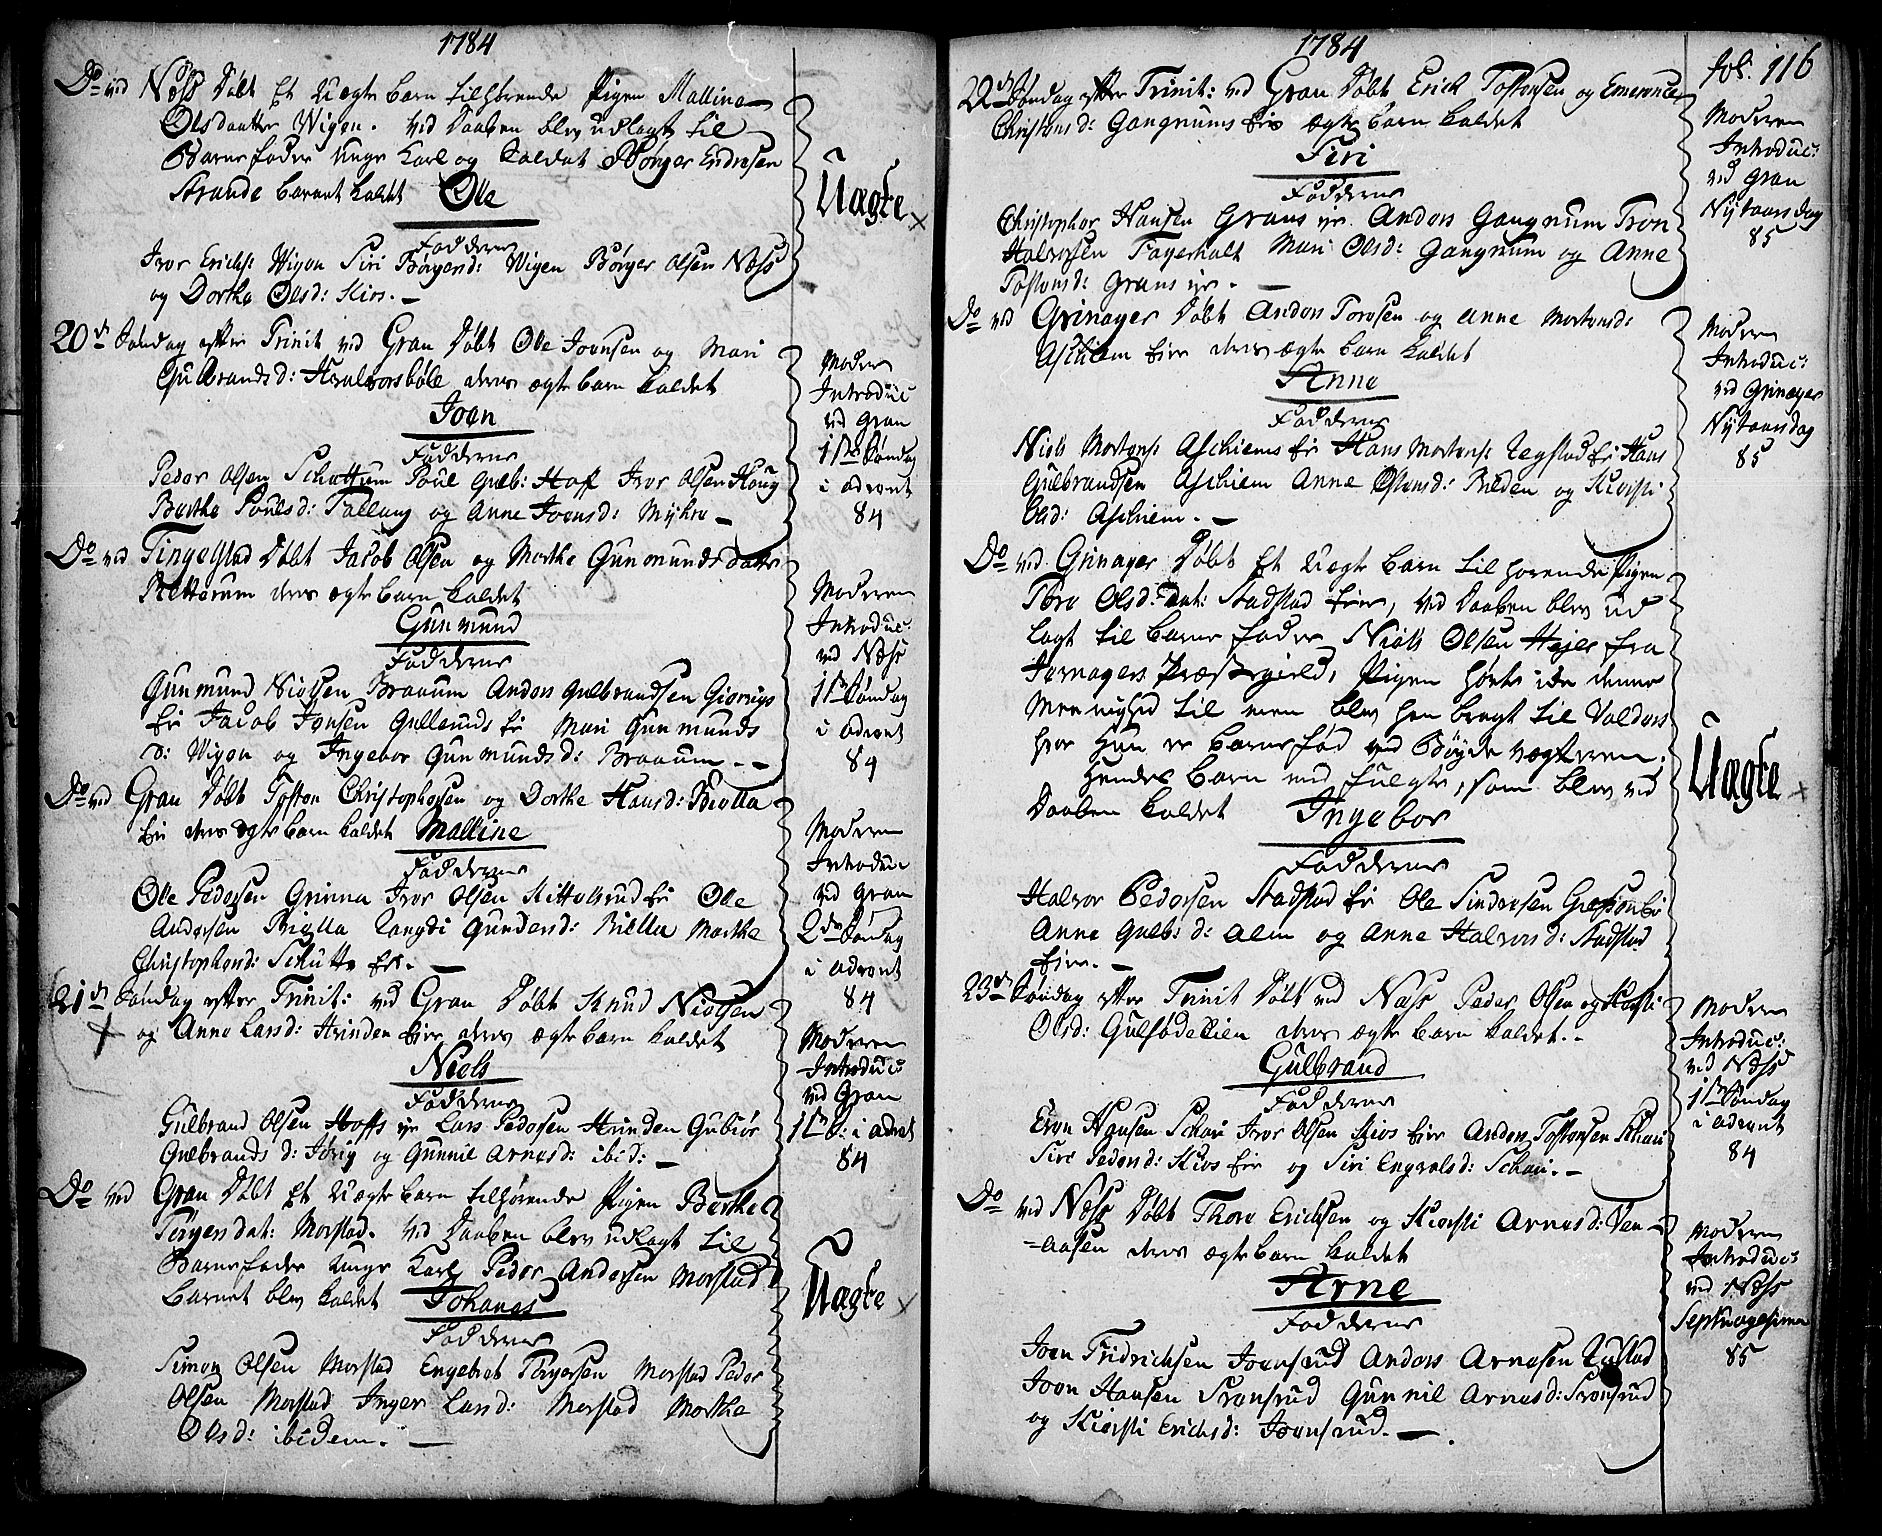 1784
Do ved Næss Døbt Et Uægte barn tilhørende Pigen Mallina
Olsdaatter Wigen. Ved Daaben blev udlagt til
Barnefader unge Karl og Soldat Børger Endresen
Strande barnet kaldt Ole
Uægte
Fadderne
Iver Erichs: Wigen Siri Børgersd: Wigen Børger Olsen Næss
og Dorthe Olsd: Kios.
20de Søndag efter Trinit ved Gran Døbt Ole Joensen og Mari
Gulbrandsd: Halvorsbøle deres ægte barn kaldet
Joen
Fadderne
Peder Olsen Schattum Poul Gulb: Hoff Iver Olsen Houg
Berthe Poulsd: Tallang og Anne Joensd: Myhre
Moderen
Introduc:
ved Gran
1ste Søndag
i advent
84
Do ved Tingelstad Døbt Jacob Olsen og Marthe Gunmunds datter
Rettorum deres ægte barn kaldet
Gunmund
Fadderne
Gunmund Nielsen Braaum Anders Gulbrandsen Giorigs
Eie Jacob Jonsen Gullerud Eie Mari Gunmunds
d: Wigen og Ingebor Gunmundsd: Braaum.
Moderen
Introduc:
ved Næss
1ste Søndag
i advent
84
Do ved Gran Døbt Tosten Christophersen og Dorthe Hansd: Biella
Eie deres ægte barn kaldet Malline
Fadderne
Ole Pedersen Grinna Iver Olsen Kittelsrud Eie Ole
Andersen Biella Langdi Gundersd: Biella Marthe
Christophersd: Schutte Eie.
Moderen
Introduc
ved Gran
2den Søndag
i advent
84
21de Søndag efter Trinit: ved Gran Døbt Knud Nielsen
og Anne Larsd: Hvinden Eier deres ægte barn kaldet
Niels
Fadderne
Gulbrand Olsen Hoffs eje Lars Pedersen Hvinden Gubiør
Gulbrands d: Jørig og Gunnil Arnesd: ibid:
Moderen
Introduc:
ved Gran
1ste S: i advent
84
Do ved Gran Døbt Et Uægte barn tilhørende Pigen Berthe
Torgersdat: Morstad. Ved Daaben blev udlagt til
Barnefader unge Karl Peder Andersen Morstad
Barnet blev kaldet Johanes
Uægte
Fadderne
Simon Olsen Morstad Engebret Torgersen Morstad Peder
Olsen Morstad Inger Larsd: Morstad Marthe
Olsd: ibidem.
1784
fol. 116
22de Søndag efter Trinit: ved Gran Døbt Erich Tostensen og Emerence
Christensd: Gangnums Eie ægte barn kaldet
Siri
Fadderne
Christopher Hansen Grans eje Anders Gangnum Tron
Halvorsen Fagerhalt Mari Olsd: Gangnum og Anne
Tostensd: Grans eje.
Moderen
Introduc:
ved Gran
Nytaarsdag
85
Do ved Grinager Døbt Anders Torosen og Anne Mortensd:
Aschiem Eier deres ægte barn kaldet
Anne
Fadderne
Niels Mortens: Aschiems Eie Hans Mortens: Tegstad Eie Hans
Gulbrandsen Aschiem Anne Ostensd: Bilden og Kiersti
Olsd: Aschiem.
Moderen
Introduc:
ved Grinager
Nytaarsdag
85
Do ved Grinager Døbt Et Uægte barn tilhørende Pigen
Tore Olsd: Stadstad Eier, Ved Daaben blev ud
lagt til barne fader Niels Olsen Hejer fra
Jevnagers Præstegield, Pigen hørte ikke denne
Meenighed til men blev hen bragt til Valders
hvor Hun er barnefød ved Bøyde vægteren.
Hendes barn med fulgte, som blev ved
Daaben kaldet Ingebor
Uægte
Fadderne
Halvor Pedersen Stadstad Eie Ole Sindersen Grefsen Eie
Anne Gulb: d: Alm og Anne Halvorsd: Stadstad
Eier.
23de Søndag efter Trinit Døbt ved Næss Peder Olsen og Kiersti
Olsd: Gulsødekien deres ægte barn kaldet.
Gulbrand
Fadderne
Even Hansen Schari Iver Olsen Kios Eier Anders Tostensen Schari
Siri Pedersd: Kios Eie og Siri Engvalsd: Schari.
Moderen
Introduc:
ved Næss
1ste Søndag
i advent
84
Do ved Næss Døbt Thore Erichsen og Kiersti Arnesd: Ven-
=aasen deres ægte barn kaldet
Arne
Fadderne
Joen Fridrichsen Joensrud Anders Arnesen
Joen Hansen Tronsrud Gunnil Arnesd: Tronsrud
og Kiersti Erichsd: Joensrud.
Moderen
Introduc:
ved Næss
Septuagesima
85